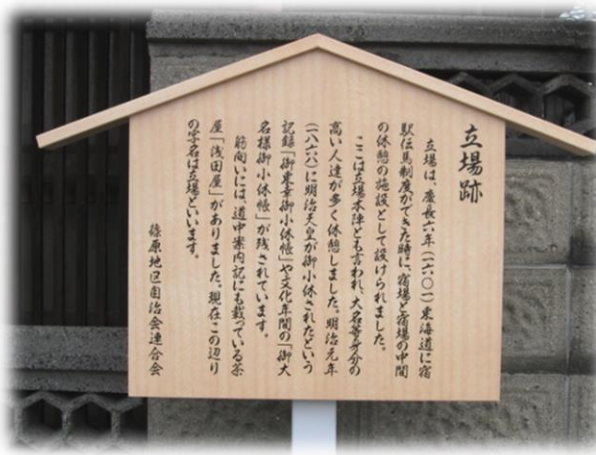 立場跡
立場は、慶長六年(一六〇一)東海道に宿
駅伝馬制度ができた時に、宿場と宿場の中間
の休憩の施設として設けられました。
ここは立場本陣とも言われ、大名等身分の
高い人達が多く休憩しました。明治元年
(一八六八)に明治天皇が御小休されたという
記録「御東幸御小休帳」や文化年間の「御大
名様御小休帳」が残されています。
筋向いには、道中案内記にも載っている茶
屋「浅田屋」がありました。現在この辺り
の字名は立場といいます。
篠原地区自治会連合会